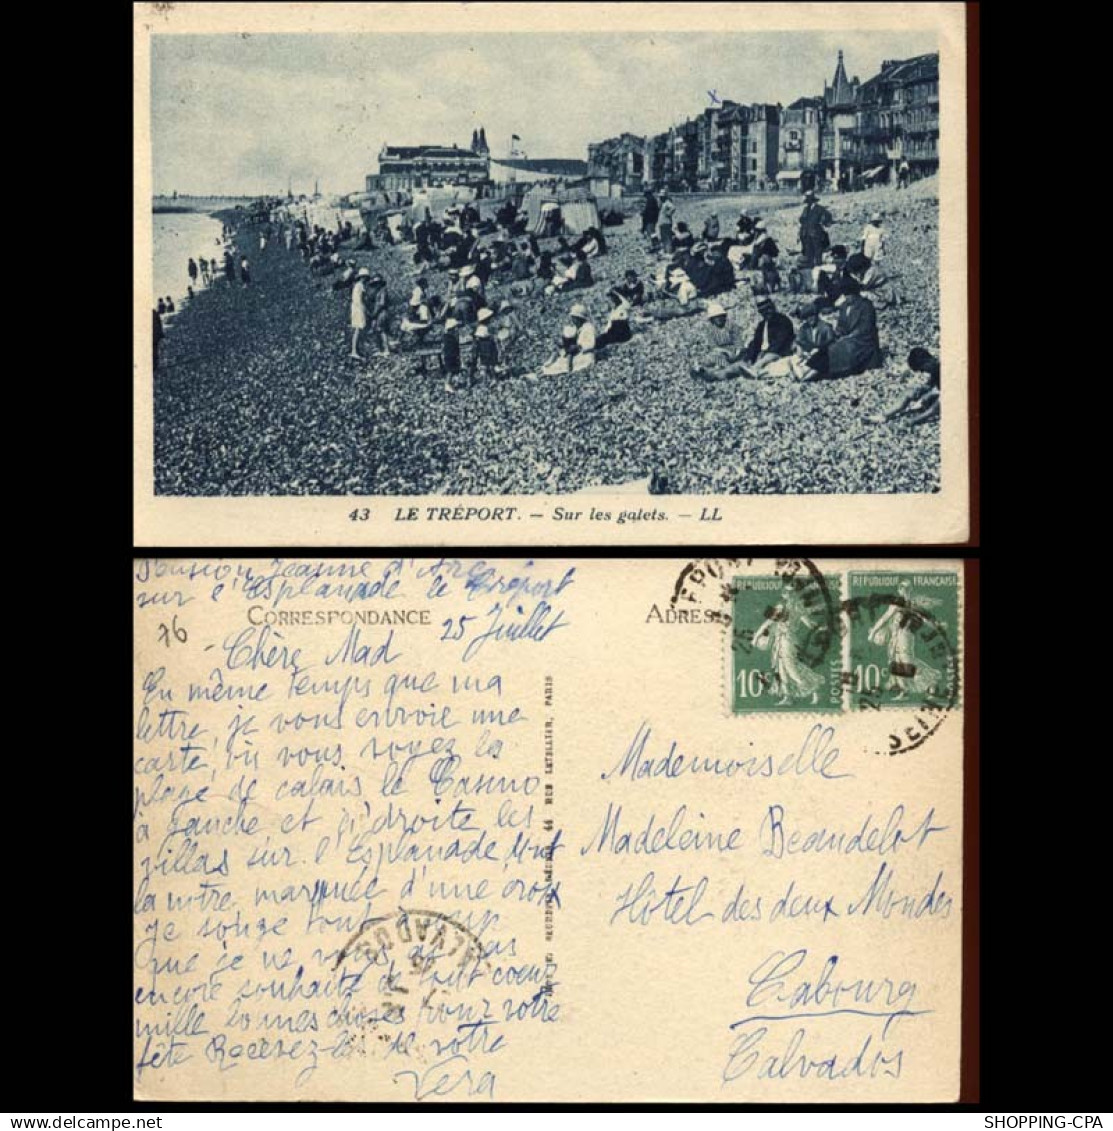 43 LE TRÉPORT. — Sur les galets. — LL
Pension Jeanne d'Arc
sur l'Esplanade le Tréport
CORRESPONDANCE
25 Juillet
76
Chère Mad
En même temps que ma
lettre, je vous envoie une
carte, où vous voyez la
plage de calais le Casino
à gauche et à droite les
villas sur l'Esplanade, dont
la notre marquée d'une croix
je songe tout coup
que je ne vous ai pas
encore souhaité de tout coeur
mille bonnes choses pour votre
fête Recevez-les de votre
Vera
CALVADOS
LETELLIER, PARIS
ADRES
REPUBLIQUE FRANÇAISE
10c
POSTES
REPUBLIQUE FRANÇAISE
10c
SEINE
Mademoiselle
Madeleine Beaudelot
Hôtel des deux Mondes
Cabourg
Calvados
SHOPPING-CPA